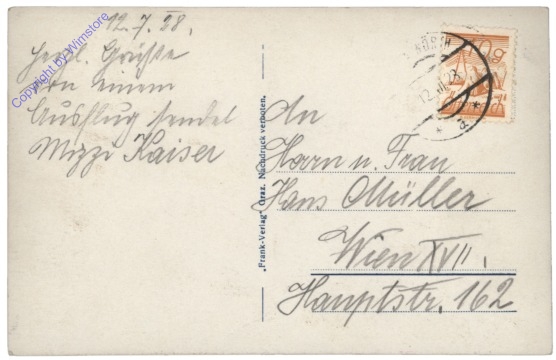 12.7.28.
Herzl. Grüße
von einem
Ausflug sendet
Mizzi Kaiser
Copyright by Wimstore
"Frank-Verlag" Graz. Nachdruck verboten.
12.VII.28
* a *
An
Herrn u. Frau
Hans Müller
Wien XVII.
Hauptstr. 162